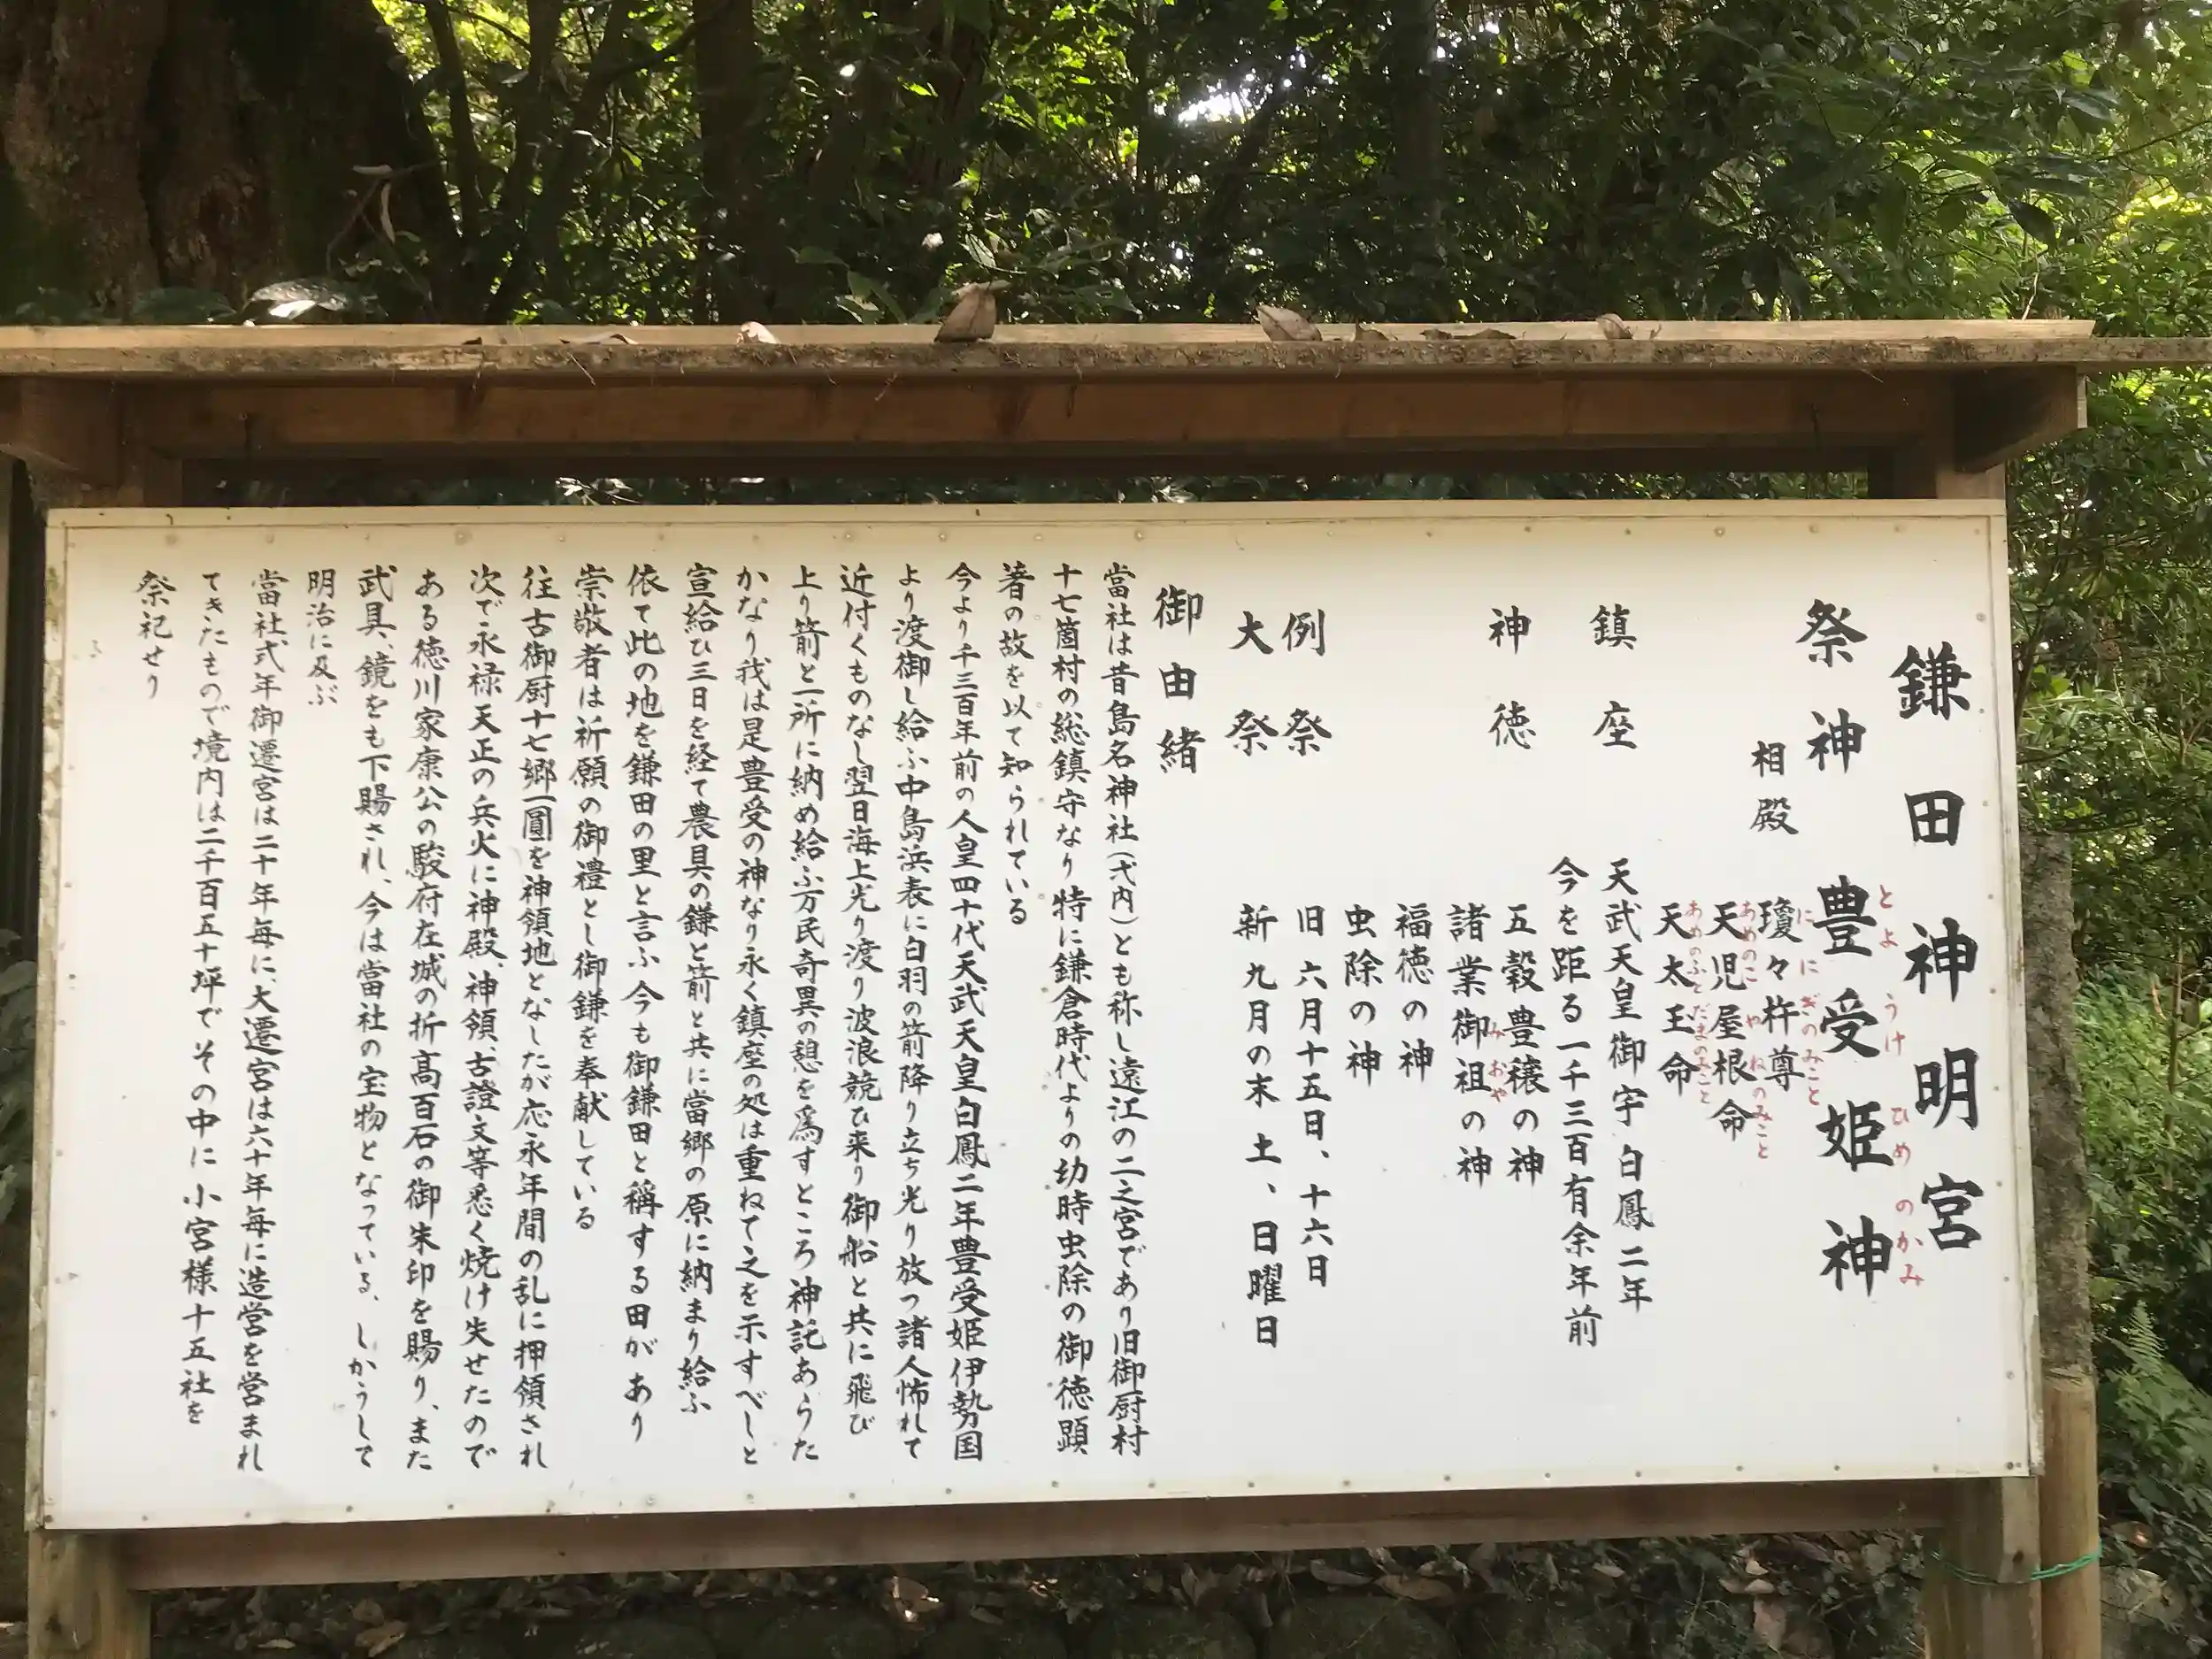 鎌田神明宮
祭神 豊受姫神
とようけひめのかみ
相殿 瓊々杵尊
ににぎのみこと
天児屋根命
あめのこやねのみこと
天太王命
あめのふとだまのみこと
鎮座 天武天皇御宇 白鳳二年
今を距る一千三百有余年前
神徳 五穀豊穣の神
諸業御祖の神
みおや
福徳の神
虫除の神
例祭 旧六月十五日、十六日
大祭 新九月の末 土、日曜日
御由緒
當社は昔島名神社(弌内)とも称し遠江の二之宮であり旧御厨村
十七箇村の総鎮守なり特に鎌倉時代よりの幼時虫除の御徳顕
著の故を以て知られている
今より千三百年前の人皇四十代天武天皇白鳳二年豊受姫伊勢国
より渡御し給ふ中島浜表に白羽の箭降り立ち光り放つ諸人怖れて
近付くものなし翌日海上光り渡り波浪競ひ来り御船と共に飛び
上り箭と一所に納め給ふ万民奇異の憩を為すところ神託あらた
かなり我は是豊受の神なり永く鎮座の処は重ねて之を示すべしと
宣給ひ三日を経て農具の鎌と箭と共に當郷の原に納まり給ふ
依て此の地を鎌田の里と言ふ今も御鎌田と稱する田があり
崇敬者は祈願の御禮とし御鎌を奉献している
往古御厨十七郷一圓を神領地となしたが応永年間の乱に押領され
次で永禄天正の兵火に神殿、神領、古證文等悉く焼け失せたので
ある徳川家康公の駿府在城の折高百石の御朱印を賜り、また
武具、鏡をも下賜され、今は當社の宝物となっている、しかうして
明治に及ぶ
當社式年御遷宮は二十年毎に、大遷宮は六十年毎に造営を営まれ
てきたもので境内は二千百五十坪でその中に小宮様十五社を
祭祀せり